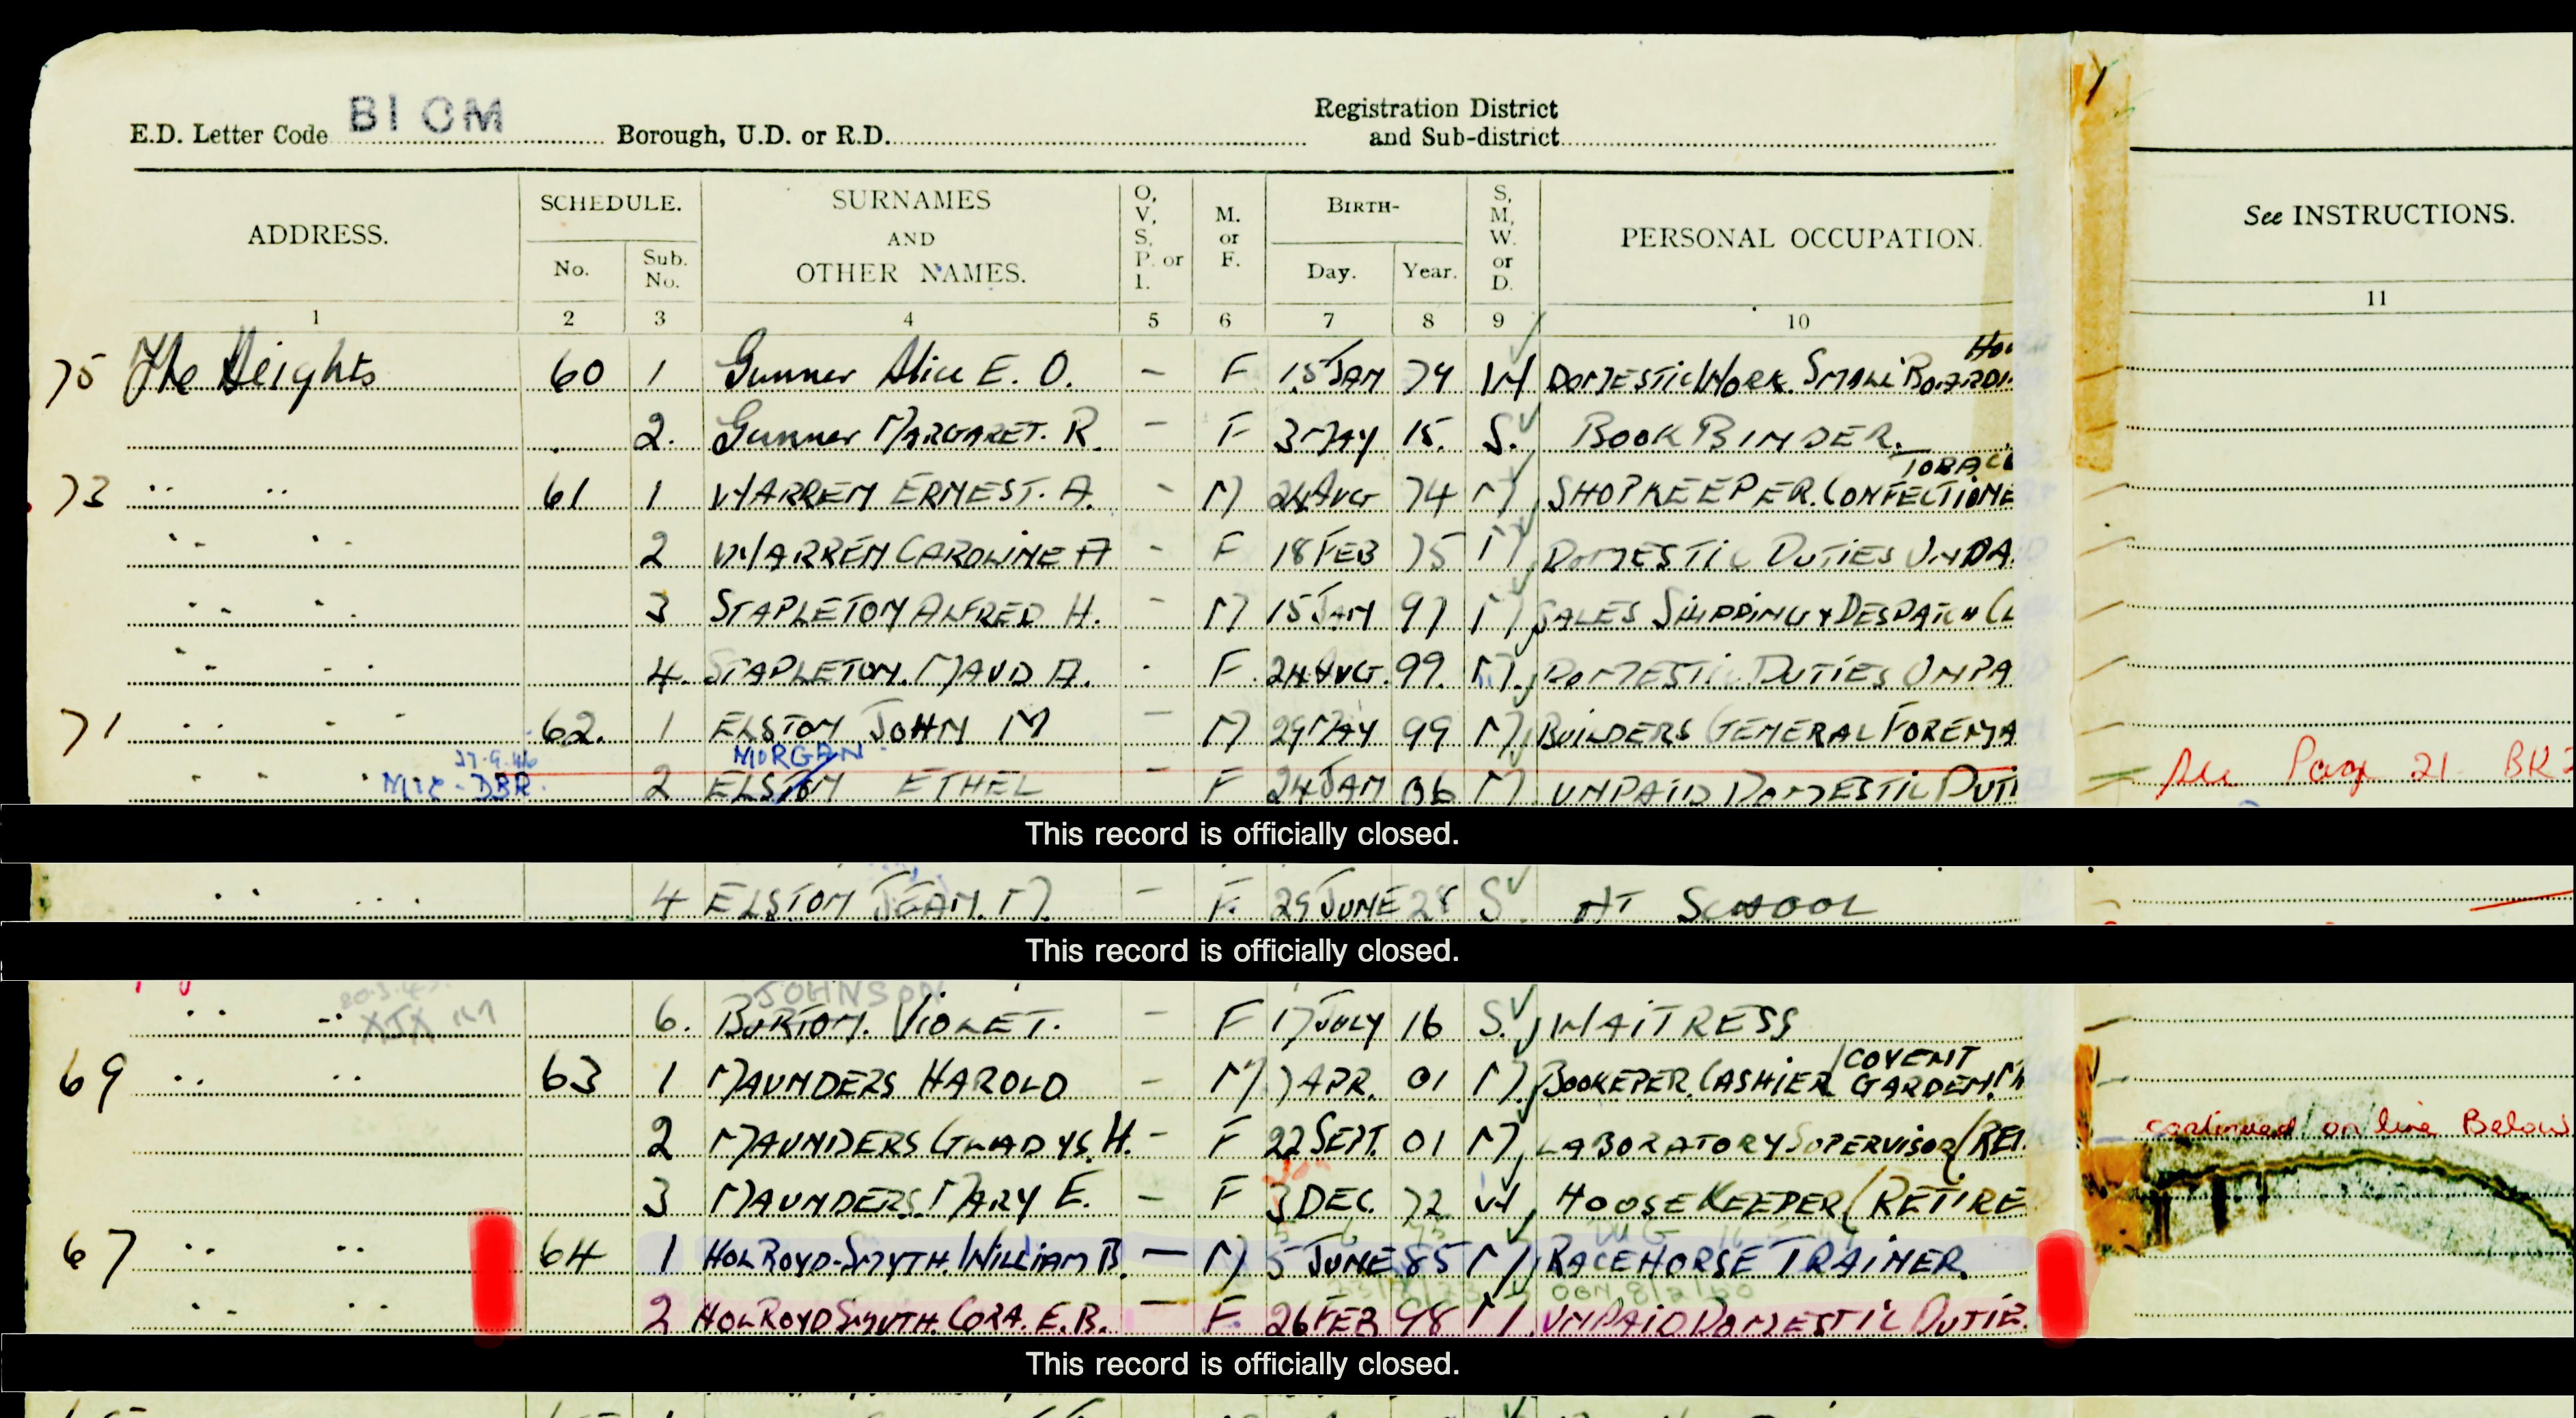 E.D. Letter Code BIOM Borough, U.D. or R.D. Registration District and Sub-district
ADDRESS. SCHEDULE. No. Sub. No. SURNAMES AND OTHER NAMES. O, V, S, P. or I. M. or F. BIRTH- Day. Year. S, M, W. or D. PERSONAL OCCUPATION. See INSTRUCTIONS.
1 2 3 4 5 6 7 8 9 10 11
75 The Heights 60 1 Gunner Alice E. O. - F 15 JAN 74 W DOMESTIC WORK. SMALL BOARDI
2. Gunner MARGARET. R. - F 3 MAY 15. S. BOOK BINDER.
TOBACC
73 .. .. 61 1 WARREN ERNEST. A. - M 24 AUG 74 M SHOPKEEPER. CONFECTIONE
.. .. 2 WARREN CAROLINE A - F 18 FEB 75 M DOMESTIC DUTIES UNPA
.. .. 3 STAPLETON ALFRED H. - M 15 JAN 97 M SALES SHIPPING & DESPATCH CL
.. .. 4. STAPLETON. MAUD A. . F. 24 AUG. 99. M. DOMESTIC DUTIES UNPA
71 .. .. 62. 1 ELSTON JOHN M - M 29 MAY 99 M. BUILDERS GENERAL FOREMA
27.9.46 MORGAN
.. .. DBR. 2 ELSTON ETHEL - F 24 JAN 06 M UNPAID DOMESTIC DUTI See Page 21 BK
This record is officially closed.
.. .. 4 ELSTON JEAN. M. - F. 29 JUNE 28 S. AT SCHOOL
This record is officially closed.
JOHNSON
.. .. 6. BURTON. VIOLET. - F 17 JULY 16 S. WAITRESS
COVENT
69 .. .. 63 1 MAUNDERS HAROLD - M 7 APR. 01 M. BOOKEPER. CASHIER GARDEN. M
2 MAUNDERS GLADYS. H. - F 22 SEPT. 01 M. LABORATORY SUPERVISOR (RET. continued on line Below
3 MAUNDERS. MARY E. - F 3 DEC. 72 W HOOSEKEEPER (RETIRE
67 .. .. 64 1 HOLROYD-SMYTH. WILLIAM B. - M 5 JUNE 85 M RACEHORSE TRAINER.
.. .. 2 HOLROYD SMYTH. CORA. E. B. - F. 26 FEB 98 M. UNPAID DOMESTIC DUTIE.
This record is officially closed.